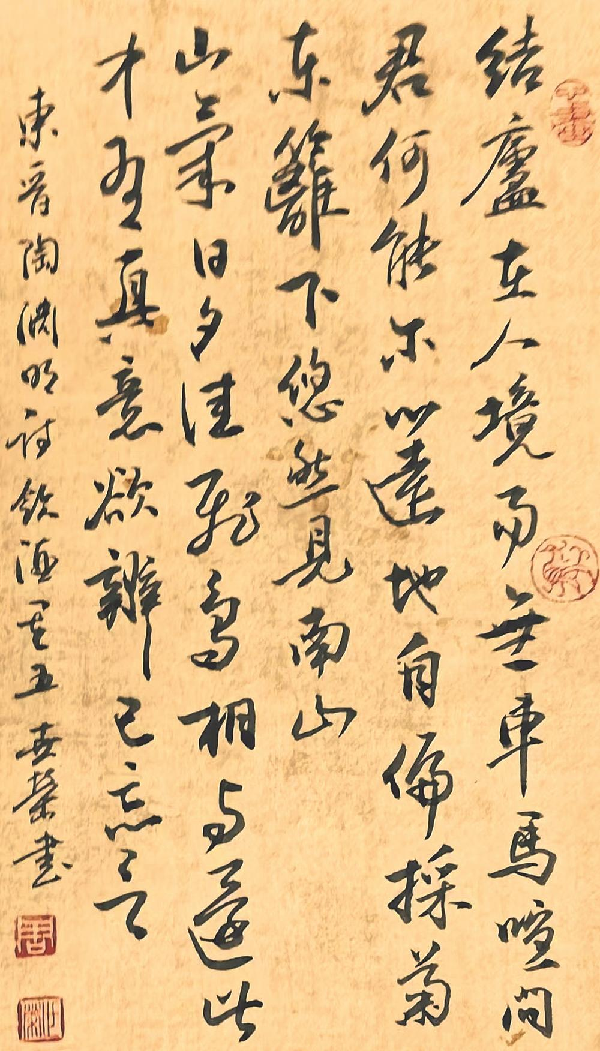 結廬在人境而無車馬喧問
君何能尔心遠地自偏採菊
东籬下悠然見南山
山氣日夕佳飛鳥相与還此
中有真意欲辨已忘言
東晋陶渊明詩飲酒其五世榮書
周